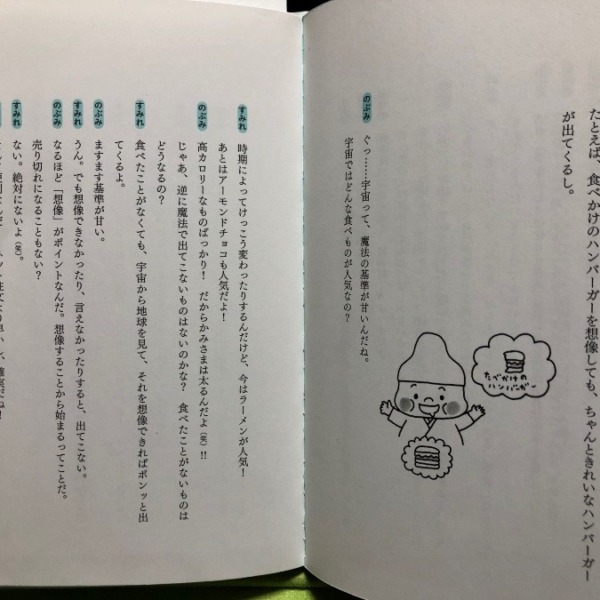 たとえば、食べかけのハンバーガーを想像しても、ちゃんときれいなハンバーガー
が出てくるし。
のぶみ
ぐっ……宇宙って、魔法の基準が甘いんだね。
宇宙ではどんな食べものが人気なの？
たべかけの
ハンバーガー
すみれ
時期によってけっこう変わったりするんだけど、今はラーメンが人気！
あとはアーモンドチョコも人気だよ！
のぶみ
高カロリーなものばっかり！　だからかみさまは太るんだよ（笑）!!
じゃあ、逆に魔法で出てこないものはないのかな？　食べたことがないものは
どうなるの？
すみれ
食べたことがなくても、宇宙から地球を見て、それを想像できればポンッと出
てくるよ。
のぶみ
ますます基準が甘い。
すみれ
うん。でも想像できなかったり、言えなかったりすると、出てこない。
のぶみ
なるほど「想像」がポイントなんだ。想像することから始まるってことだ。
売り切れになることもない？
すみれ
ない。絶対にないよ（笑）。